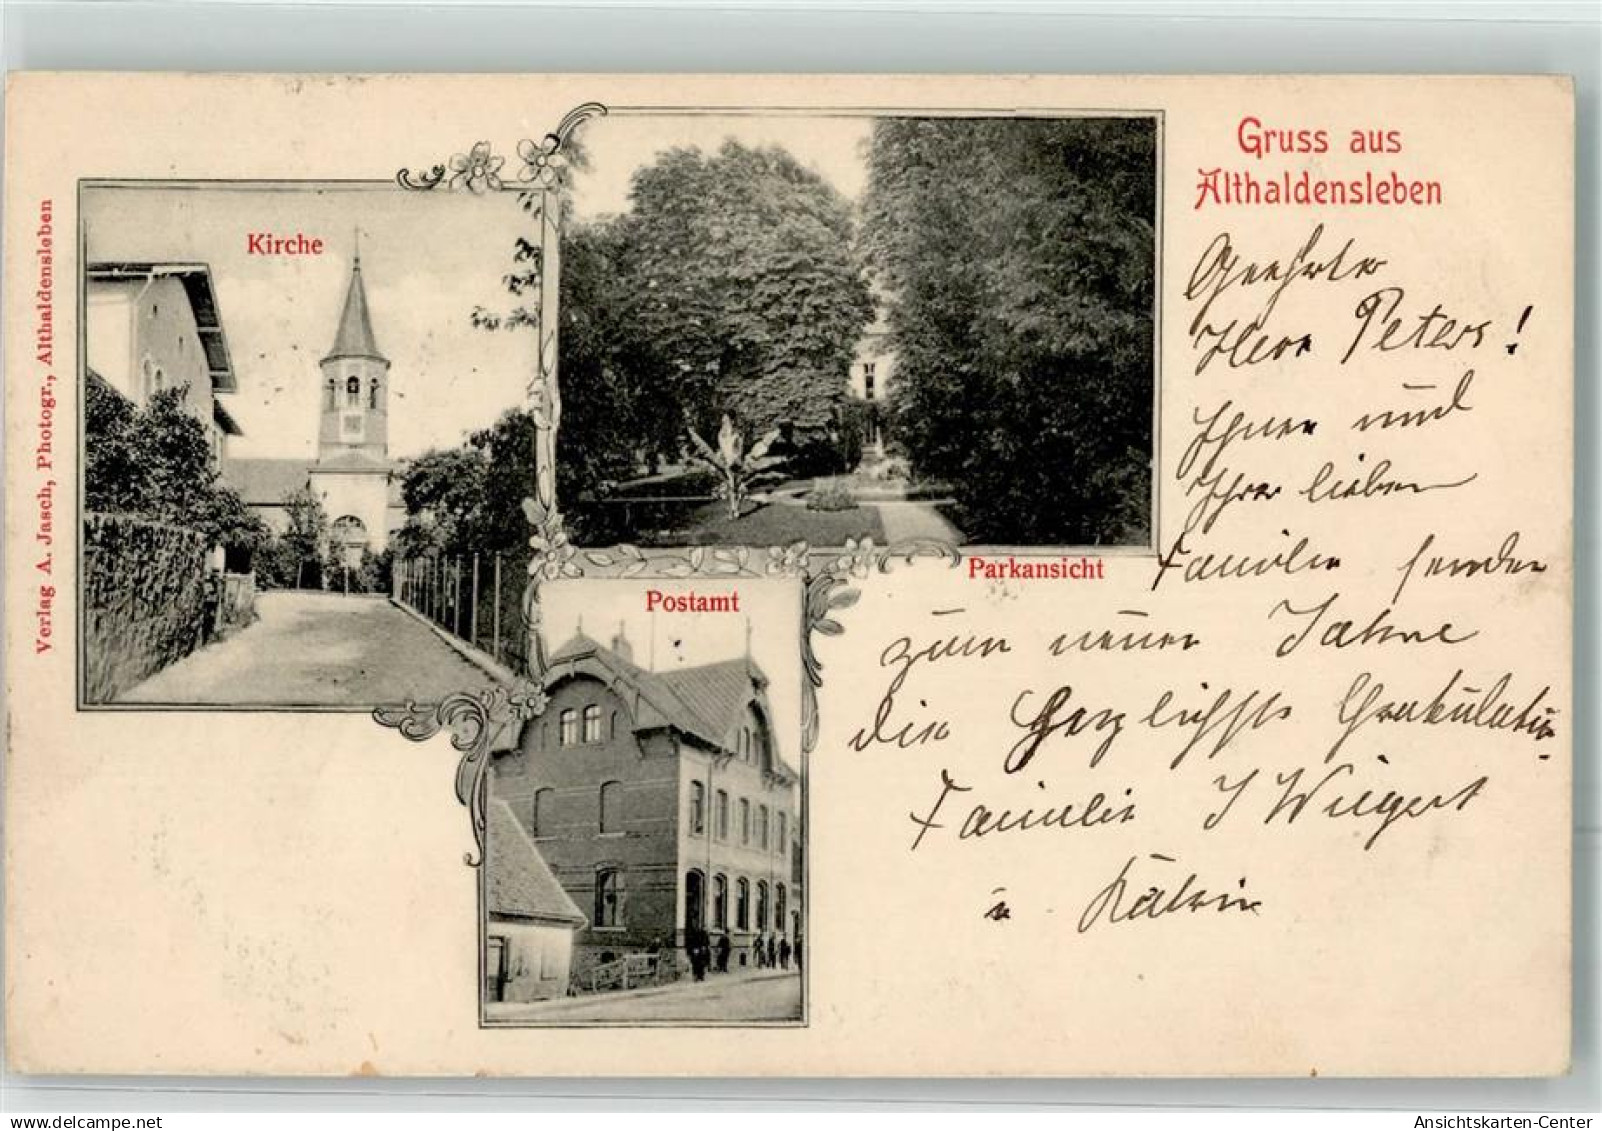 Gruss aus
Althaldensleben
Kirche
Parkansicht
Postamt
Verlag A. Jasch, Photogr., Althaldensleben
Geehrter
Herr Peters!
Ihnen und
Ihrer lieben
Familie senden
zum neuen Jahre
die Herzlichste Gratulation
Familie J Wiegert
u.
www.oldthing.de
Ansichtskarten-Center